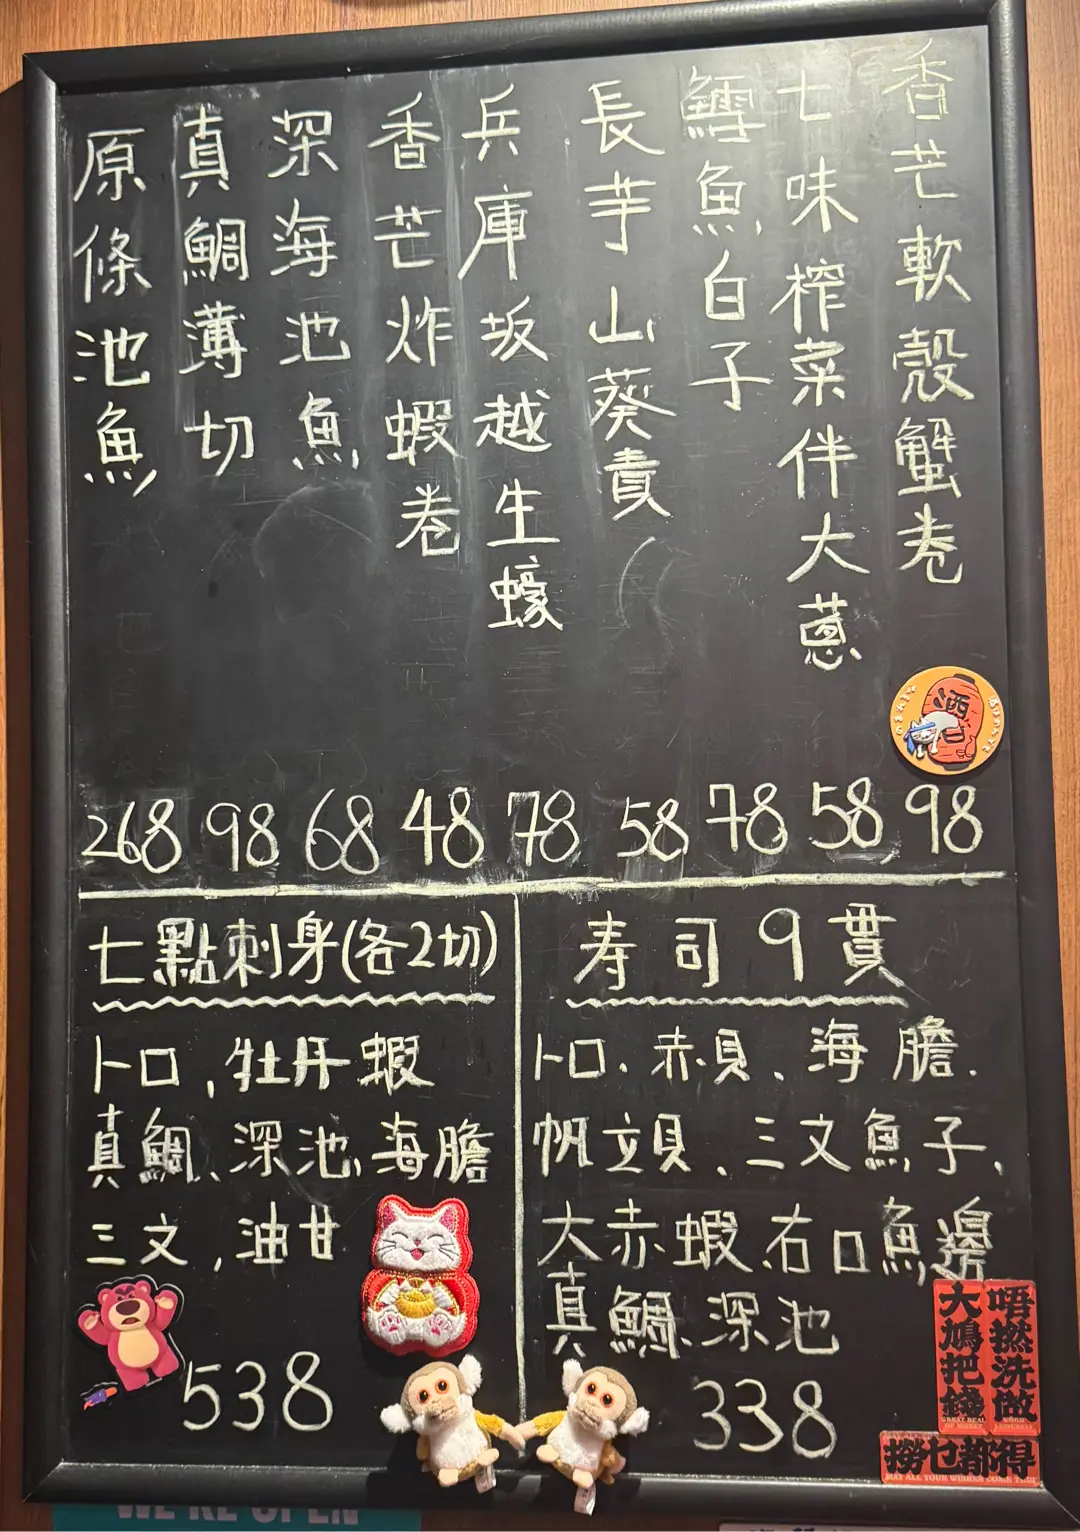 香芒軟殼蟹卷
七味榨菜伴大蔥
鱈魚白子
長芋山葵責
兵庫坂越生蠔
香芒炸蝦卷
深海池魚
真鯛薄切
原條池魚
268 98 68 48 78 58 78 58 98
七點刺身(各2切)
トロ,牡丹蝦
真鯛、深池,海膽
三文,油甘
538
寿司9貫
トロ.赤貝、海膽.
帆立貝、三文魚子、
大赤蝦.右口魚邊
真鯛、深池
338
酒
唔撚洗做
WORK
大鳩把錢
GREAT DEAL
OF MONEY
撈乜都得
MAY ALL YOUR WISHES COME TRUE
WE'RE OPEN